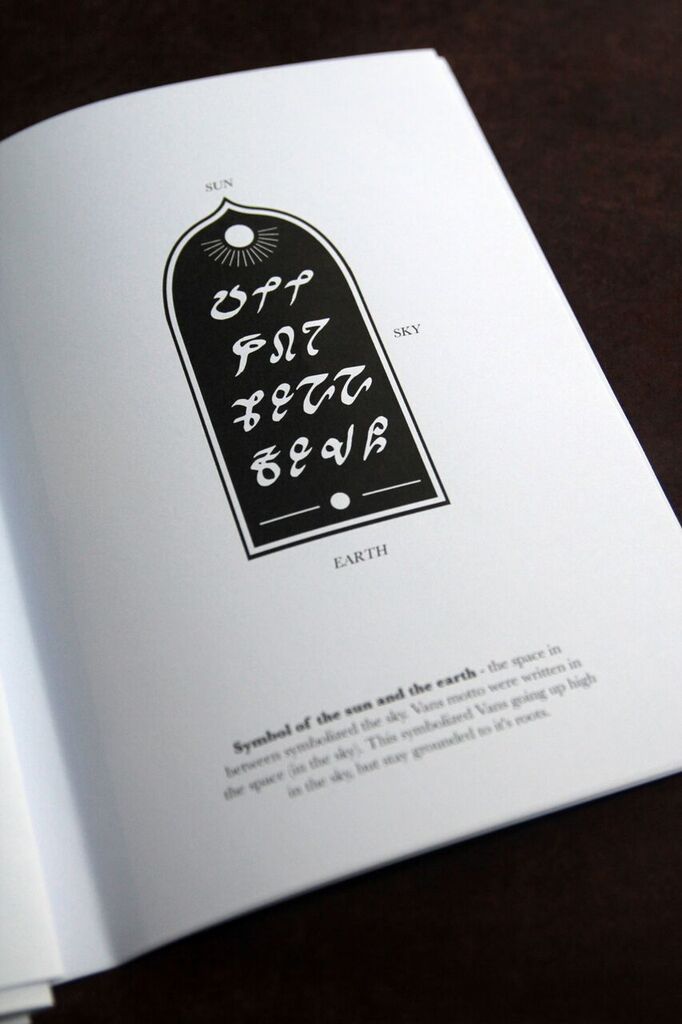 SUN
SKY
EARTH
Symbol of the sun and the earth - the space in
between symbolized the sky. Vans motto were written in
the space (in the sky). This symbolized Vans going up high
in the sky, but stay grounded to it's roots.